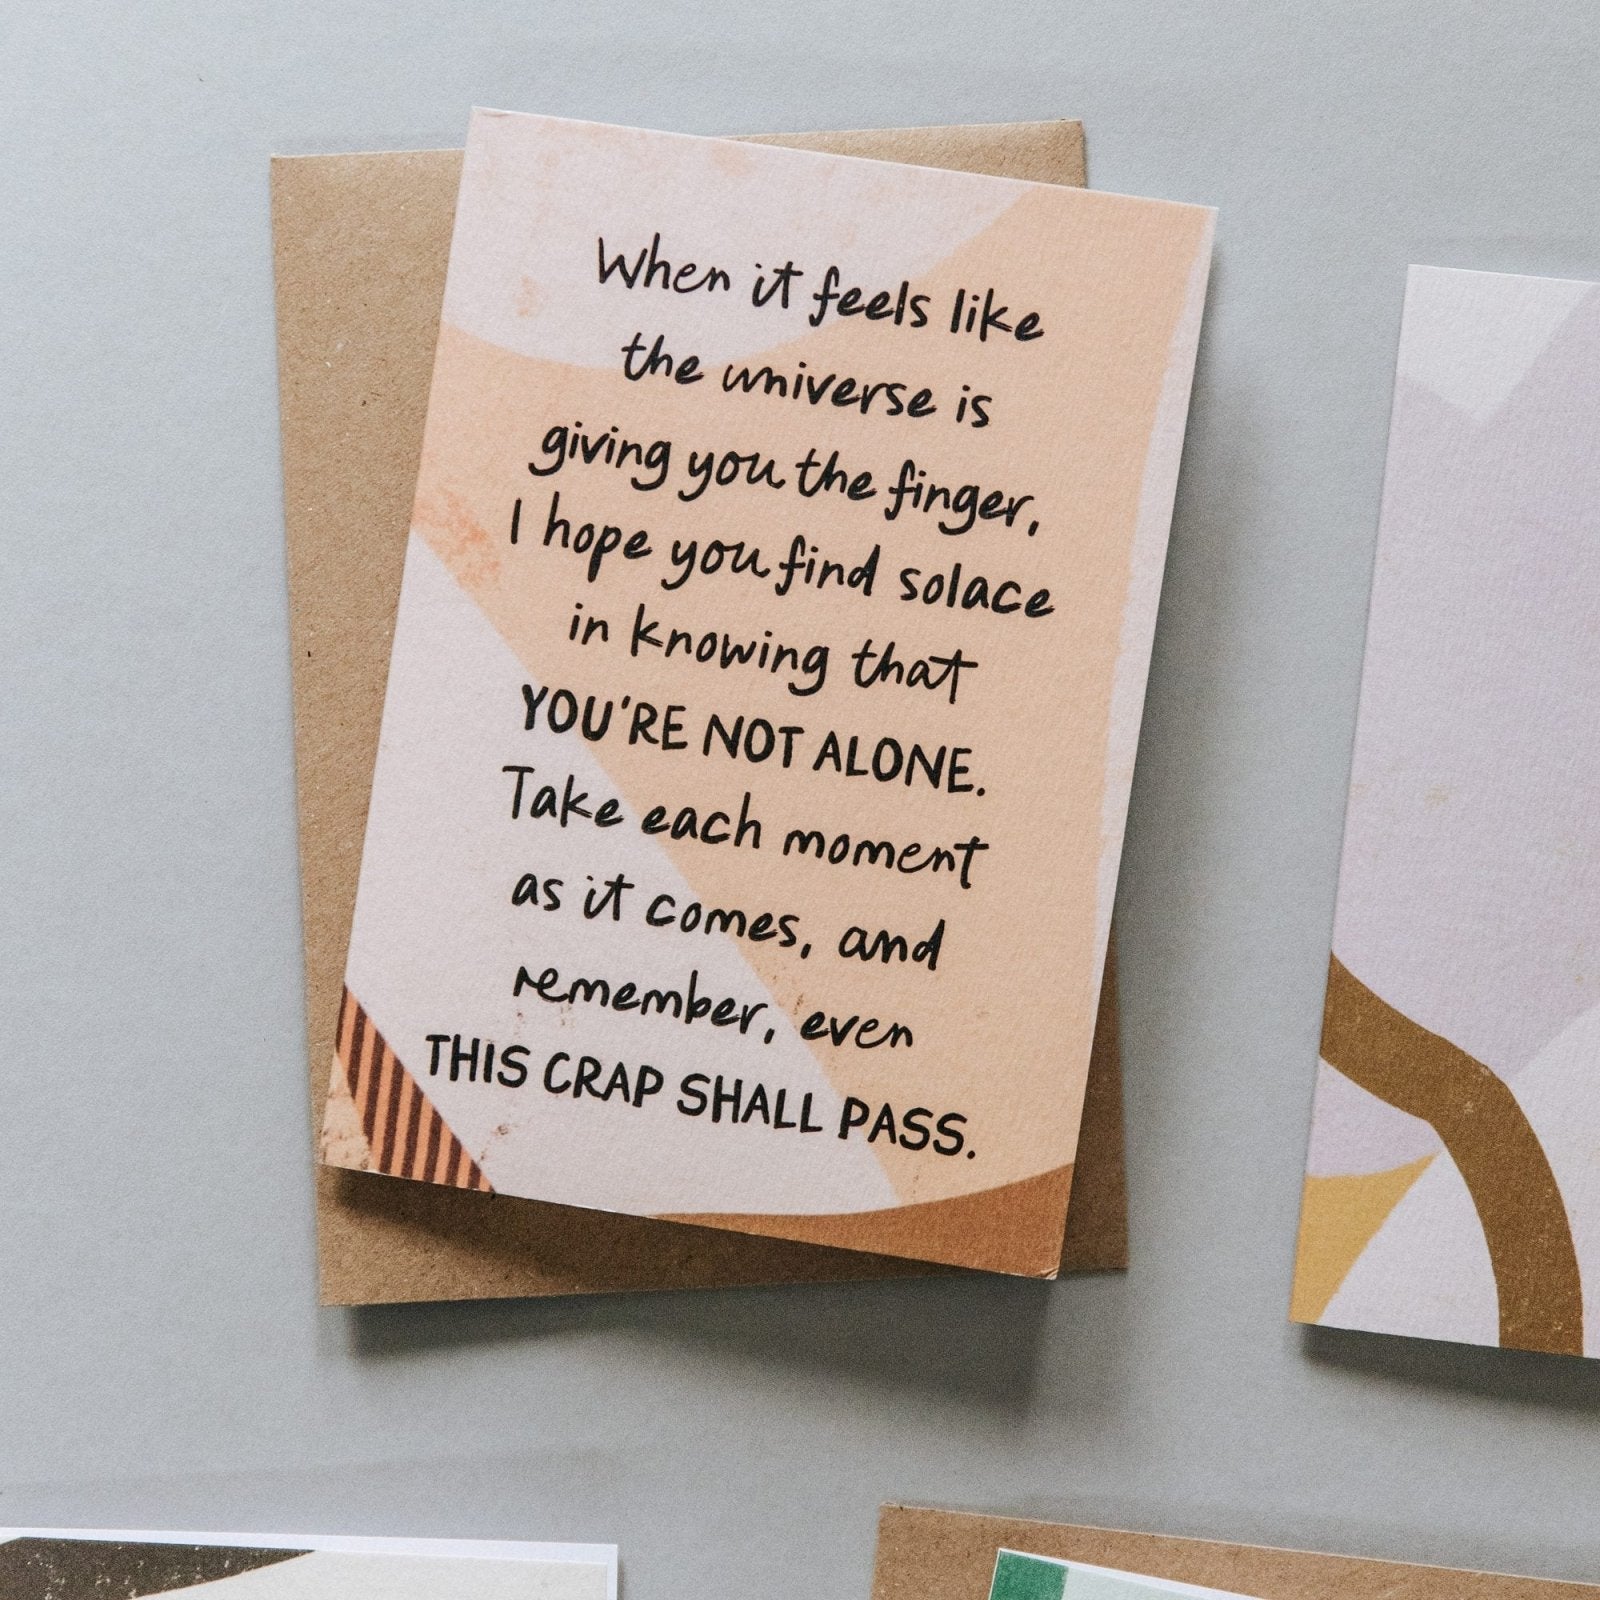 When it feels like
the universe is
giving you the finger,
I hope you find solace
in knowing that
YOU'RE NOT ALONE.
Take each moment
as it comes, and
remember, even
THIS CRAP SHALL PASS.